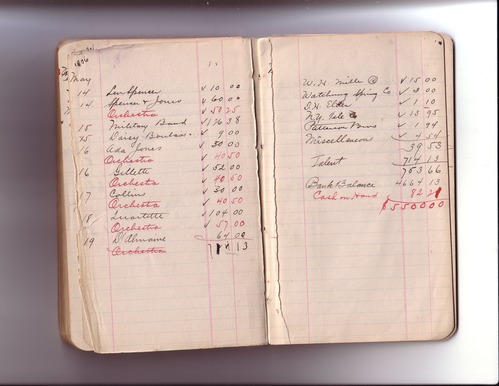 1906
May
14 Len Spencer √ 10 00
14 Spencer & Jones √ 60 00
Orchestra √ 50 25
15 Military Band √ 176 38
25 Daisy √ 9 00
16 Ada Jones √ 30 00
Orchestra √ 40 50
16 Gillette √ 52 00
Orchestra √ 40 50
17 Collins √ 30 00
Orchestra √ 40 50
18 Quartette √ 104 00
Orchestra √ 57 00
19 D'Almaine 64 00
Orchestra 714 13
W. H. Mills √ 15 00
Watchung Spring Co √ 3 00
D. H. Elder √ 1 10
N.Y. Tele Co √ 13 95
Patterson Bros √ 1 94
Miscellaneous √ 4 54
39 53
Talent 714 13
753 66
Bank Balance 4664 13
Cash on Hand 82 21
$5500 00